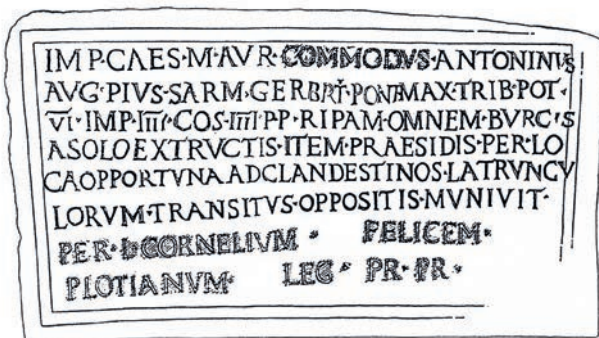 IMP·CAES·M·AVR·COMMODVS·ANTONINVS
AVG·PIVS·SARM·GER·BRIT·PONT·MAX·TRIB·POT·
VI·IMP·IIII·COS·IIII·PP·RIPAM·OMNEM·BVRGIS
A SOLO EXTRVCTIS·ITEM·PRAESIDIS·PER·LO
CA OPPORTVNA AD CLANDESTINOS·LATRVNCV
LORVM·TRANSITVS·OPPOSITIS·MVNIVIT·
PER·L·CORNELIVM· FELICEM·
PLOTIANVM· LEG· PR·PR·